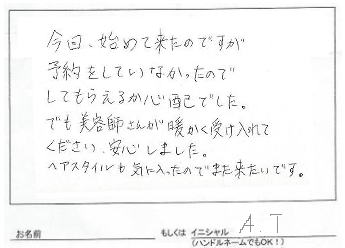 今回、始めて来たのですが
予約をしていなかったので
してもらえるか心配でした。
でも美容師さんが暖かく受け入れて
ください、安心しました。
ヘアスタイルも気に入ったのでまた来たいです。
お名前 もしくは イニシャル A.T
(ハンドルネームでもOK！)